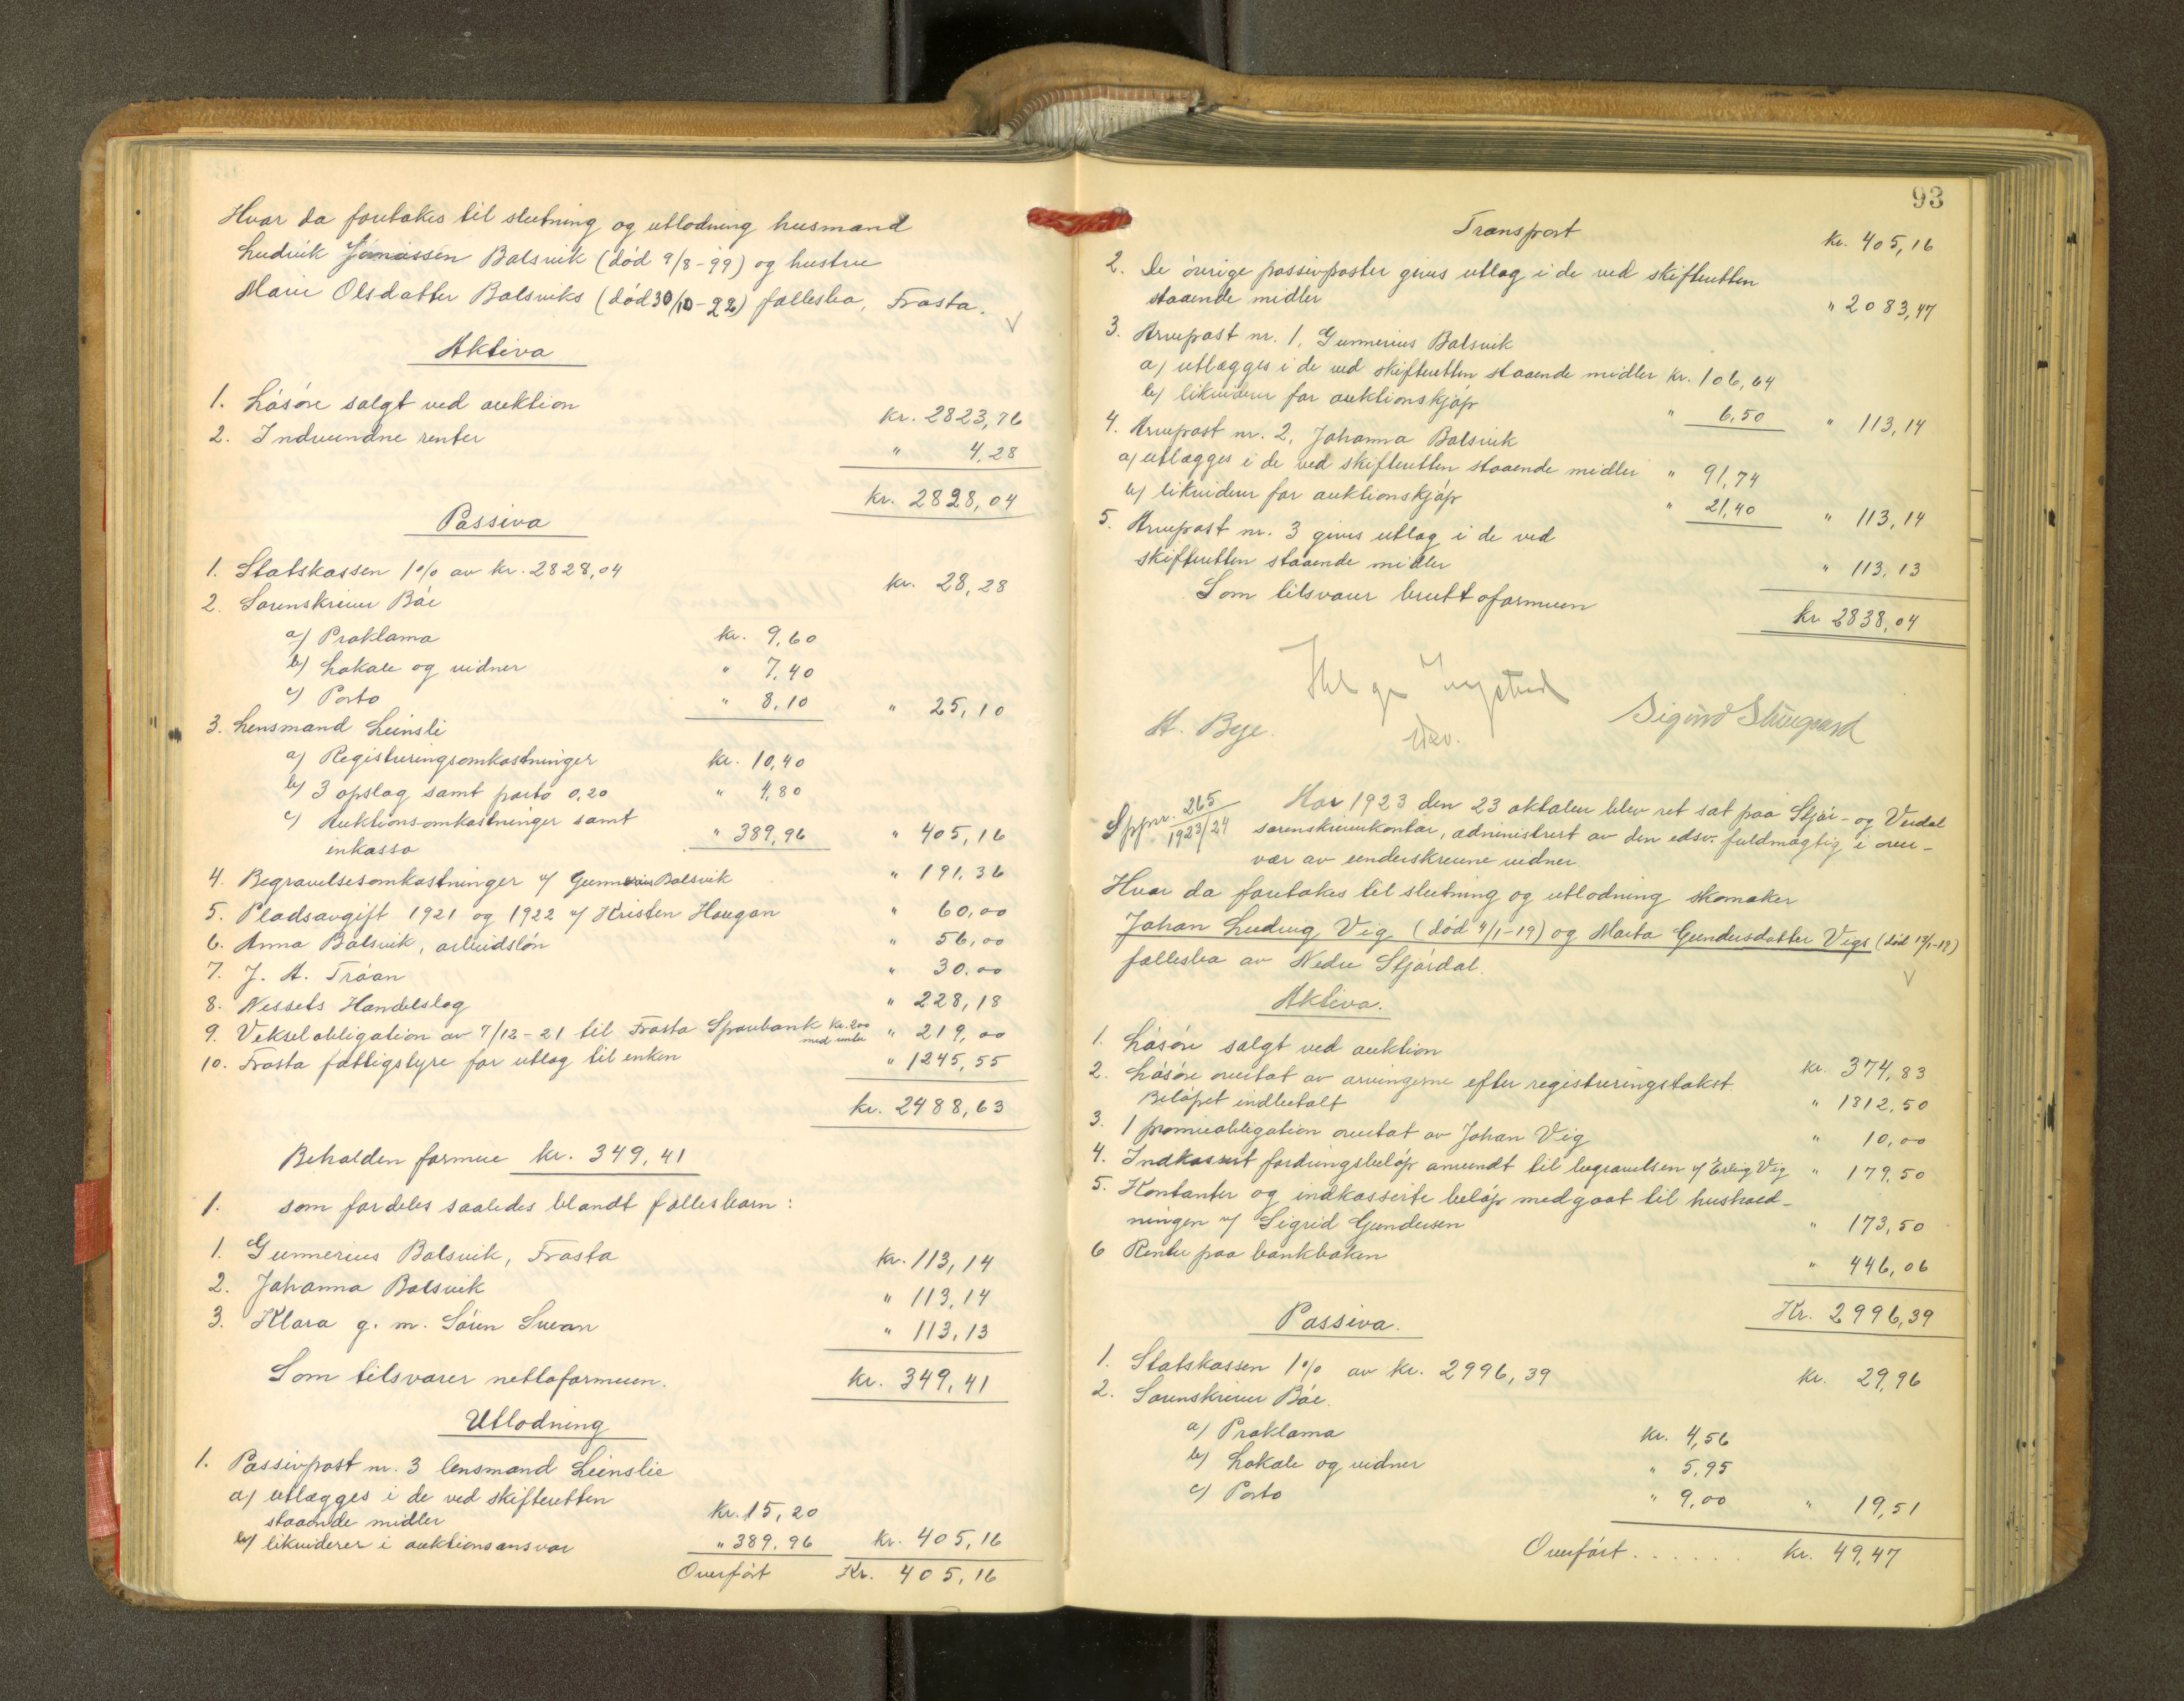 Hvor da foretakes til slutning og utlodning husmand
Ludvik Jonassen Balsvik (død 9/8-99) og hustru
Marie Olsdatter Balsviks (død 30/10-22) fællesbo, Frosta.
Aktiva
1. Løsøre solgt ved auktion kr. 2823,76
2. Indvundne renter " 4,28
kr. 2828,04
Passiva
1. Statskassen 1% av kr. 2828,04 kr. 28,28
2. Sorenskriver Bøe
a) Proklama kr. 9,60
b) Lokale og vidner " 7,40
c) Porto " 8,10 " 25,10
3. Lensmand Leinsli
a) Registreringsomkostninger kr. 10,40
b) 3 opslag samt porto 0,20 " 4,80
c) Auktionsomkostninger samt
inkasso " 389,96 " 405,16
4. Begravelsesomkostninger v/ Gunnerius Balsvik " 191,36
5. Pladsavgift 1921 og 1922 v/ Kristen Haugan " 60,00
6. Anna Balsvik, arbeidsløn " 56,00
7. J. A. Trøan " 30,00
8. Nessets Handelslag " 228,18
9. Vekselobligation av 7/12-21 til Frosta Sparebank kr. 200 " 219,00
med renter
10. Frosta fattigstyre for utlag til enken " 1245,55
kr. 2488,63
Beholden formue kr. 349,41
1. som fordeles saaledes blandt fællesbarn:
1. Gunnerius Balsvik, Frosta kr. 113,14
2. Johanna Balsvik " 113,14
3. Klara g. m. Søren Svean " 113,13
Som tilsvarer nettoformuen. kr. 349,41
Utlodning
1. Passivpost nr. 3 lensmand Leinslie
a) utlægges i de ved skifteretten
staaende midler kr. 15,20
b) likviderer i auktionsansvar " 389,96 kr. 405,16
Overført Kr. 405,16
93
Transport kr. 405,16
2. De øvrige passivposter gives utlag i de ved skifteretten
staaende midler " 2083,47
3. Arvepost nr. 1, Gunnerius Balsvik
a) utlægges i de ved skifteretten staaende midler kr. 106,64
b) likviderer for auktionskjøp " 6,50 " 113,14
4. Arvepost nr. 2, Johanna Balsvik
a) utlægges i de ved skifteretten staaende midler " 91,74
b) likviderer for auktionskjøp " 21,40 " 113,14
5. Arvepost nr. 3 gives utlag i de ved
skifteretten staaende midler " 113,13
Som tilsvarer bruttoformuen kr 2838,04
Helge Ingstad
A. Bye. Sigurd
Aar 1923 den 23 oktober blev ret sat paa Stjør- og Verdal
265
1923/24 sorenskriverkontor, administrert av den edsv. fuldmægtig i over-
vær av underskrevne vidner.
Hvor da foretakes til slutning og utlodning skomaker
Johan Ludvig Vig (død 4/1-19) og Marta Gundersdatter Vigs (død 13/1-19)
fællesbo av Nedre Stjørdal.
Aktiva.
1. Løsøre solgt ved auktion kr. 374,83
2. Løsøre overtat av arvingerne efter registreringstakst
Beløpet indbetalt " 1812,50
3. 1 præmieobligation overtat av Johan Vig " 10,00
4. Indkassert fordringsbeløp anvendt til begravelsen v/ Erling Vig " 179,50
5. Kontanter og indkasserte beløp medgaat til hushold-
ningen v/ Sigrid Gundersen " 173,50
6 Renter paa bankboken " 446,06
Kr. 2996,39
Passiva.
1. Statskassen 1% av kr. 2996,39 kr. 29,96
2. Sorenskriver Bøe.
a) Proklama kr. 4,56
b) Lokale og vidner " 5,95
c) Porto " 9,00 " 19,51
Overført...... kr. 49,47